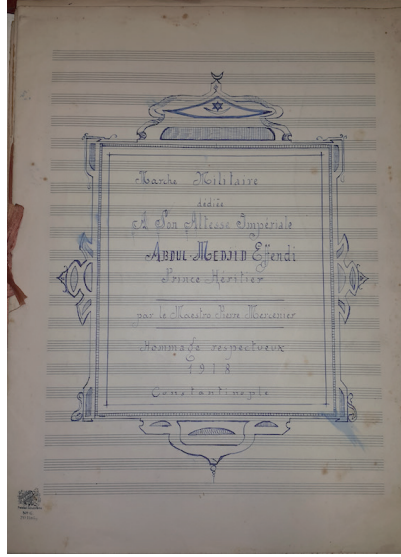 Marche Militaire
dédiée
A Son Altesse Impériale
ABDUL-MEDJID Effendi
Prince Héritier
par le Maestro Pierre Mercenier
Hommage respectueux
1918
Constantinople